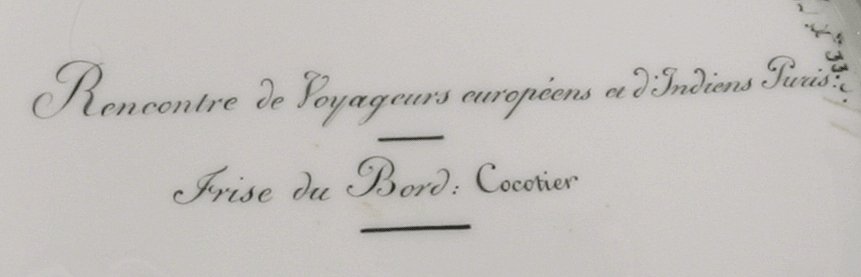 Rencontre de Voyageurs européens et d'Indiens Puris.
Frise du Bord: Cocotier